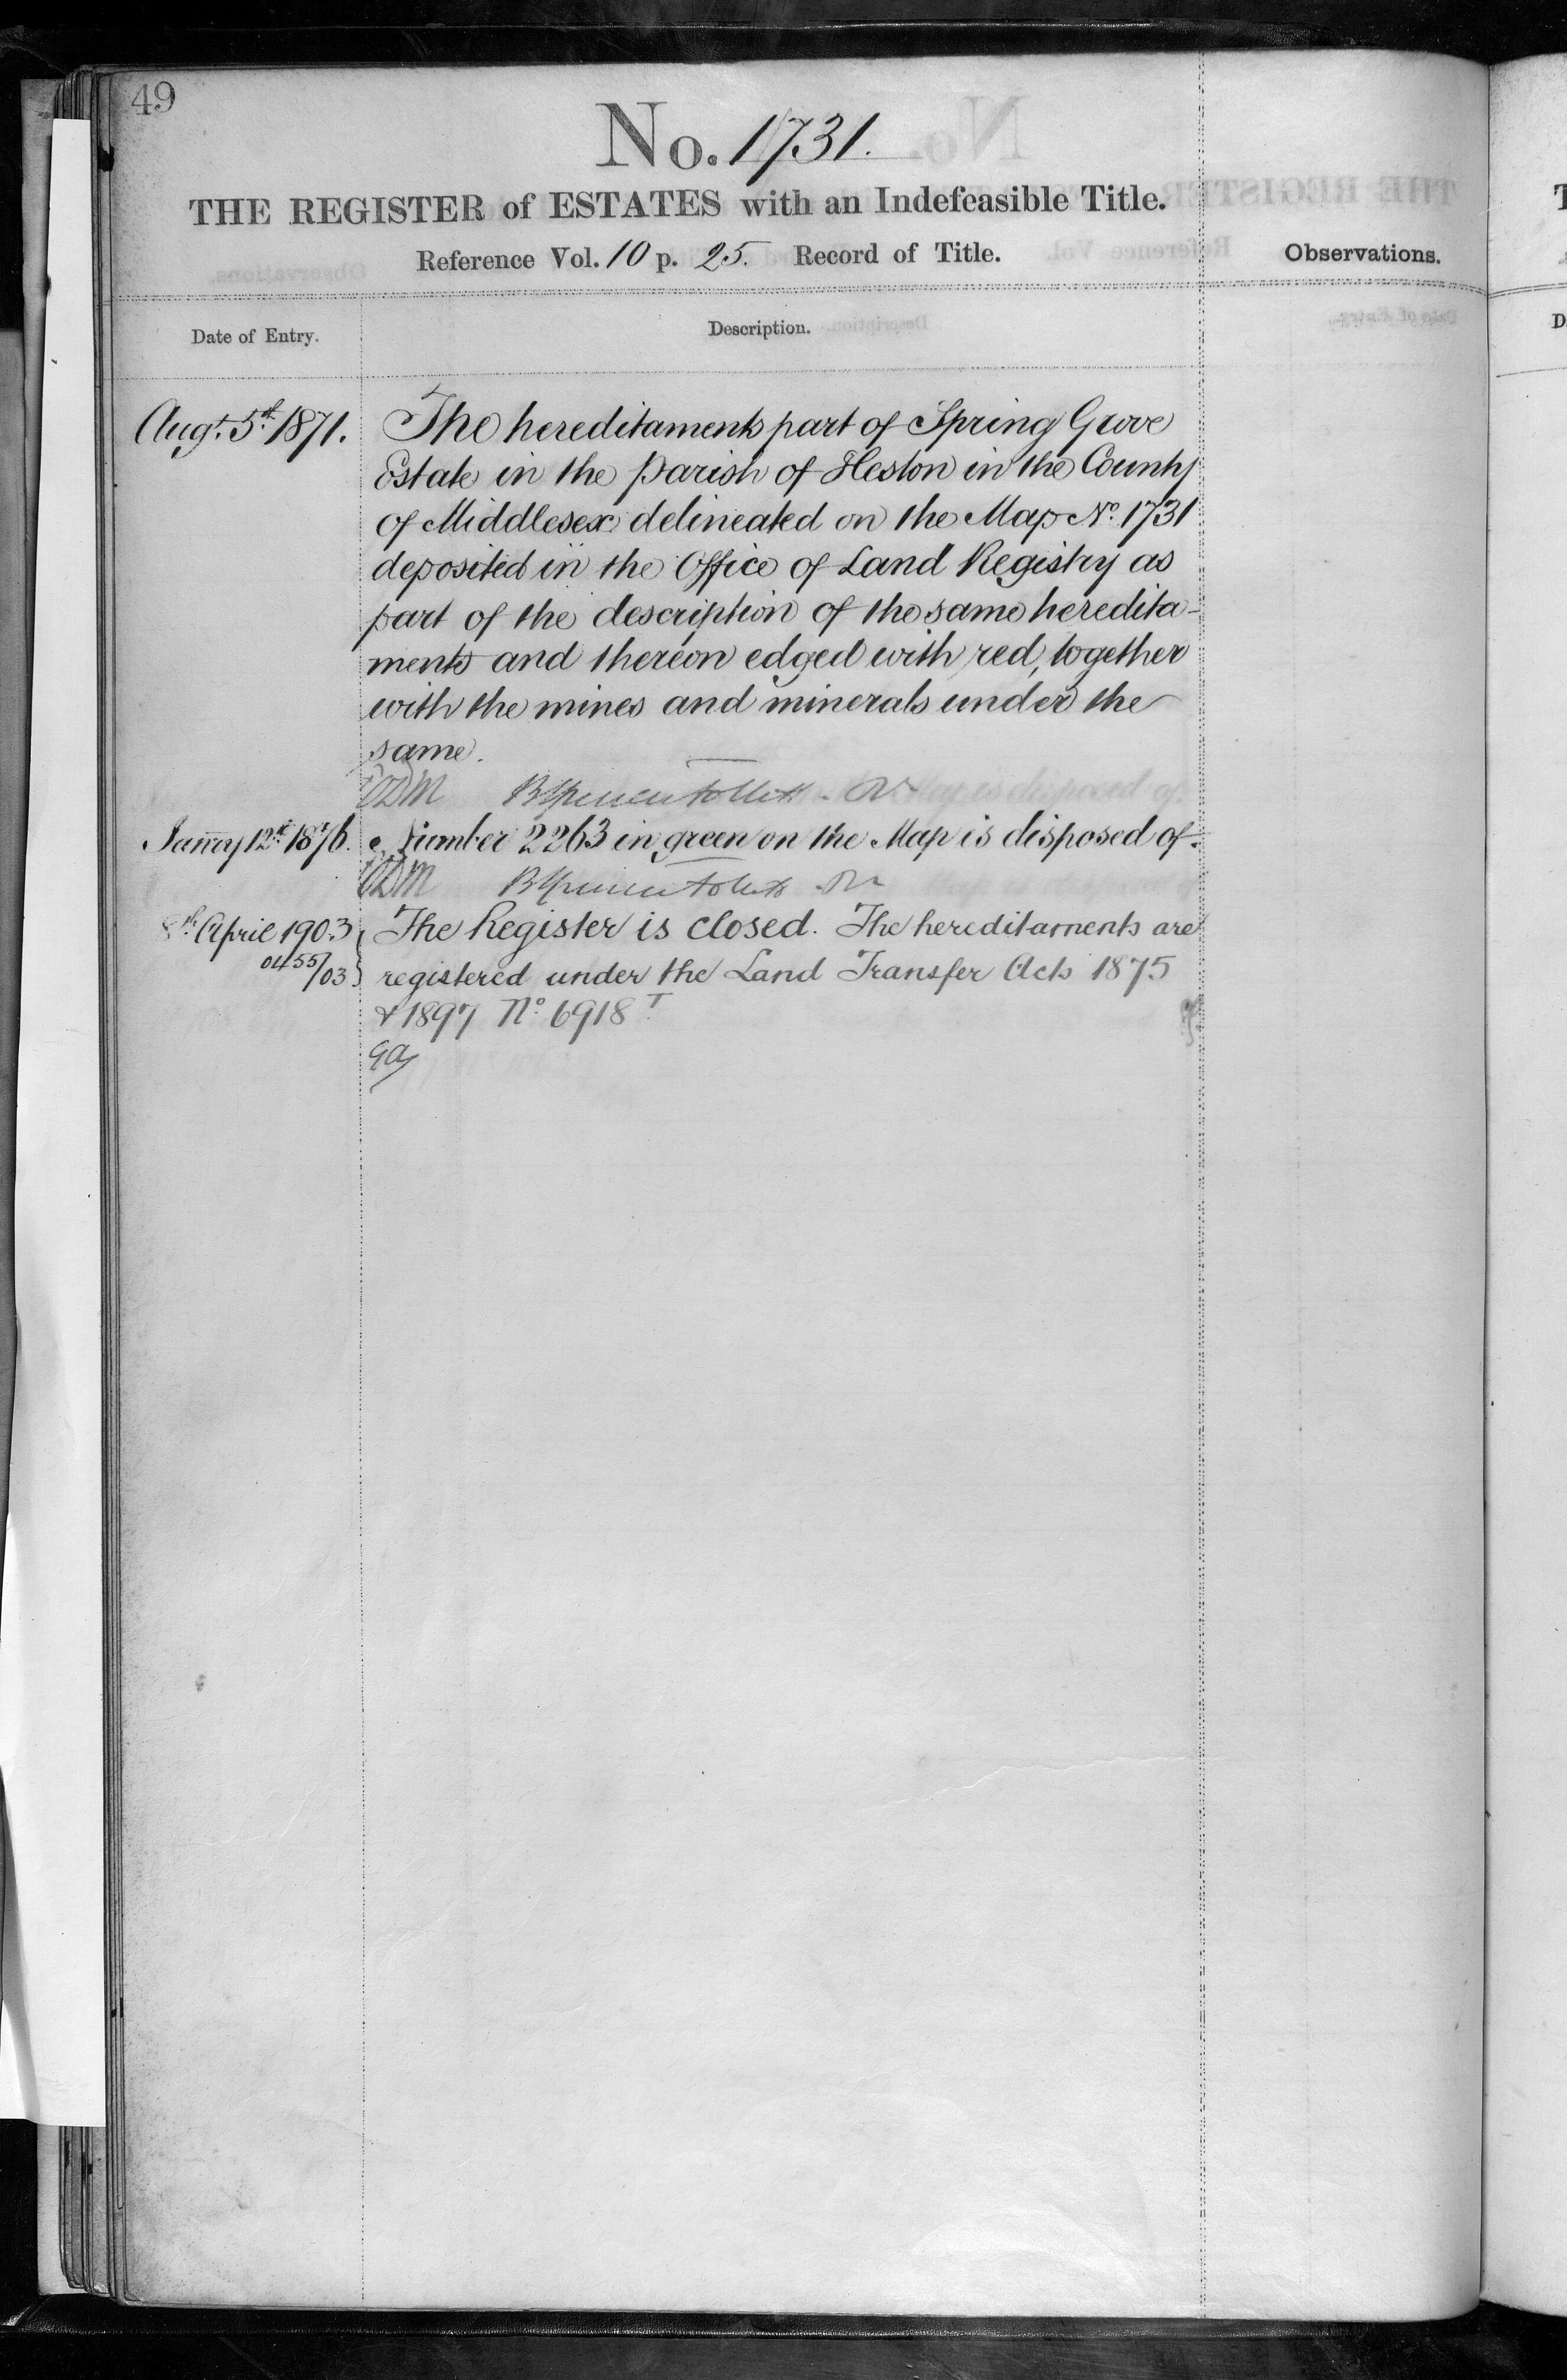 49
No. 1731.
THE REGISTER of ESTATES with an Indefeasible Title.
Reference Vol. 10 p. 25. Record of Title.
Observations.
Date of Entry.
Description.
Augt. 5th 1871.
The hereditaments part of Spring Grove
Estate in the Parish of Heston in the County
of Middlesex delineated on the Map No. 1731
deposited in the Office of Land Registry as
part of the description of the same heredita-
ments and thereon edged with red, together
with the mines and minerals under the
same.
Jan̄ry 12th 1876.
Number 2263 in green on the Map is disposed of.
8th April 1903
0455/03
The Register is closed. The hereditaments are
registered under the Land Transfer Acts 1875
& 1897 No. 6918 T